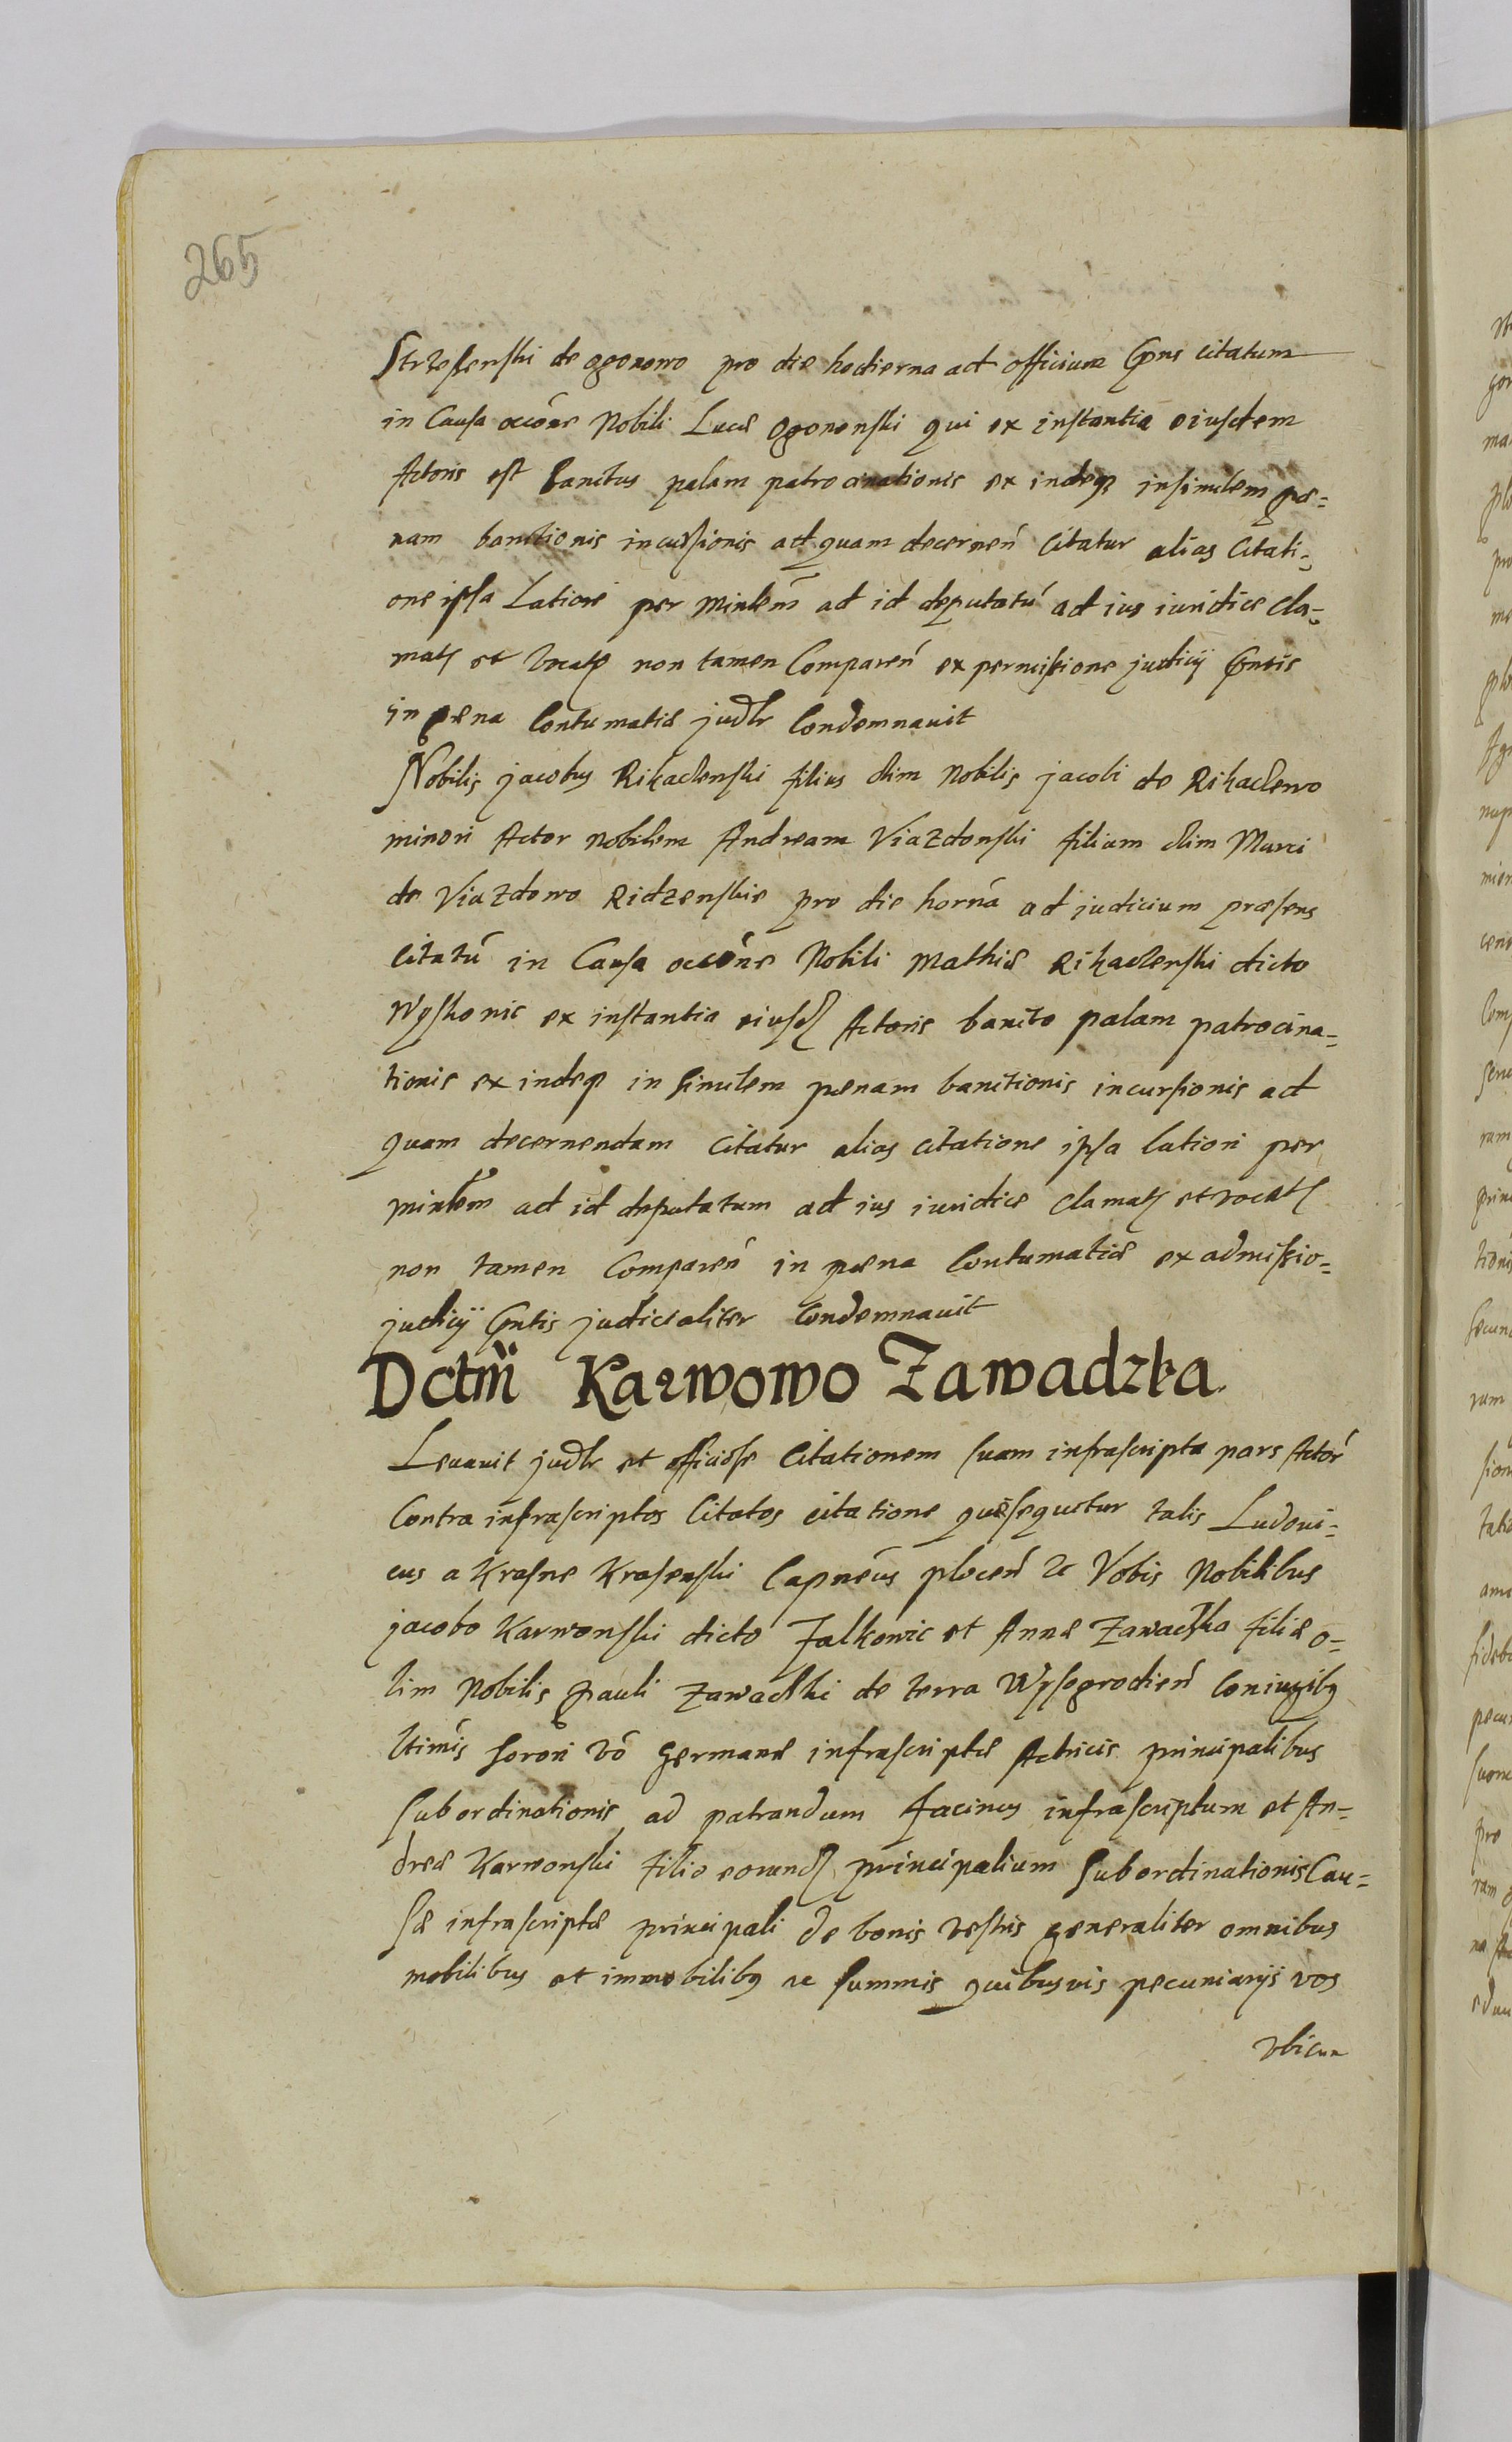 265
Strzeszenski de ogonowo pro die hodierna ad officium Gns citatum
in Causa occōne Nobili Lucæ Ogonenski qui ex instantia eiusdem
Actoris est banitus palam patrocinationis ex indeq insimilem pæ=
nam banitionis incursionis ad quam decernen̄ Citatur alias Citati=
one ipsa Latiori per Minlem̄ ad id deputatú ad ius iuridice cla=
mat et vocat non tamen Comparen̄ ex permissione judicij Gntis
in pæna Contumatiæ judlr Condemnauit
Nobilis jacobus Rikaclenski filius olim Nobilis jacobi de Rikaclewo
minori Actor nobilem Andream Viazdonski filium olim Marci
de Viazdowo Ridzenskie pro die horná ad judicium præsens
Citatú in Causa occōne Nobili Mathiæ Rikaclenski dicto
Wyskonic ex instantia eiusd Actoris banito palam patrocina=
tionis ex indeq in similem pænam banitionis incursionis ad
quam decernendam Citatur alias citatione ipsa latiori per
minlem̄ ad id deputatum ad ius iuridice Clamat et vocat
non tamen Comparen̄ in pæna Contumatiæ ex admissio=
judicij Gntis judicialiter Condemnauit
Dctm̄ Karwowo Zawadzka
Leuauit judlr et officiose Citationem suam infrascripta pars Actor
Contra infrascriptos Citatos citatione quæ sequitur talis Ludoui=
cus a Krasne Krasenski Capneús plocen̄ &c Vobis Nobilibus
jacobo Karwonski dicto Falkowic et Annæ Zawaczka filiæ o=
lim Nobilis pauli Zawaczki de terra Wysogrodien̄ Coniugibq
ltimis sorori vó germanæ infrascriptæ Actricis principalibus
subordinationis ad patrandum facinus infrascriptum et An=
dreæ Karwonski filio eorund principalium Subordinationis Cau=
sæ infrascriptæ principali de bonis vestris generaliter omnibus
mobilibus et immobilibq ac summis quibusvis pecuniarijs vos
vbicun